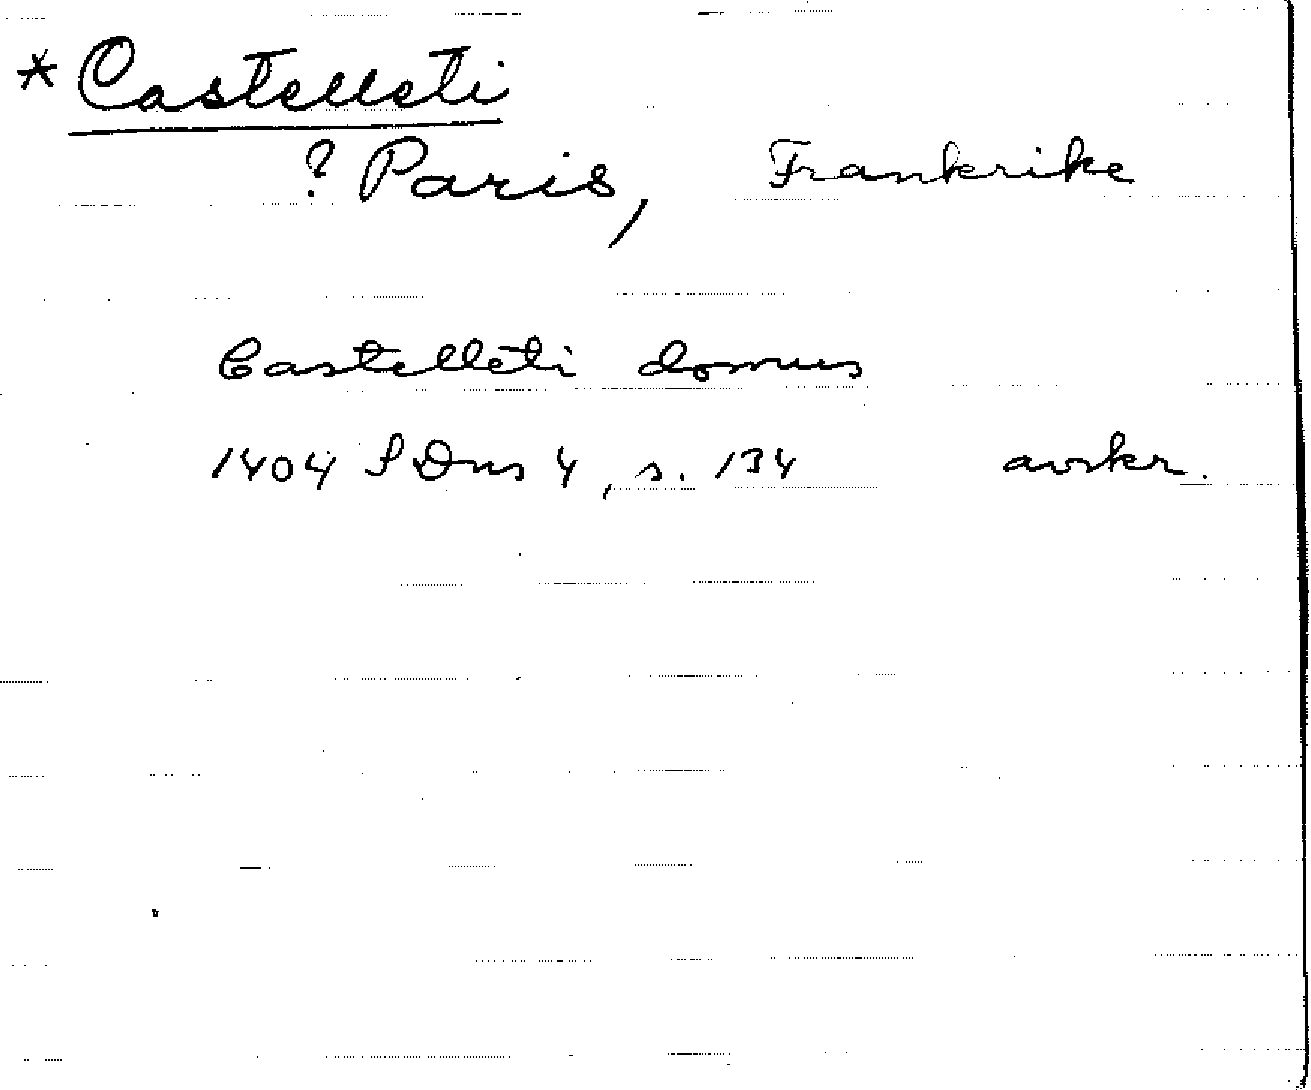 *Castelleti
? Paris, Frankrike
Castelleti domus
1404 SDns 4, s. 134 avskr.